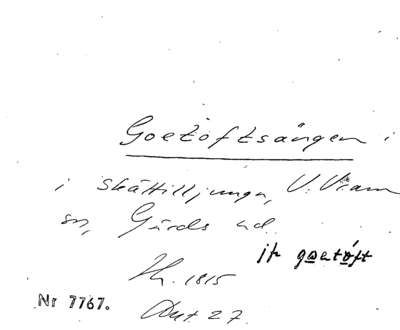 Goetöftsängen i
i Skättilljunga, V. Vram
sn, Gärds hd.
jfr goetöft
Hh. 1815
Nr 7767. Akt 27